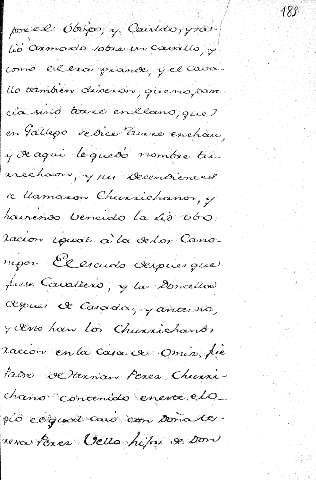 189
por el Obispo, y Cavildo, y sa-
lió Armado sobre un Cavallo, y
como el era grande, y el Cava-
llo tambien dixeron, que no, pare-
cia sinó torre en llano, que
en Gallego se dice turre en chau,
y de aqui le quedó nombre tu-
rrechaon, y sus decendientes
se llamaron Churrichanos, y
haviendo vencido la lid
racion igual á la de los Cano-
nigos. El escudo despues que
fuese Cavallero, y la Doncella
despues de Casada, y antes no,
y deste han los Churrichanos
racion en la Casa de fue
Padre de Hernan Perez Churri-
chano contenido en este elo-
gio el qual casó con Doña te-
resa Perez Vello hija de Don